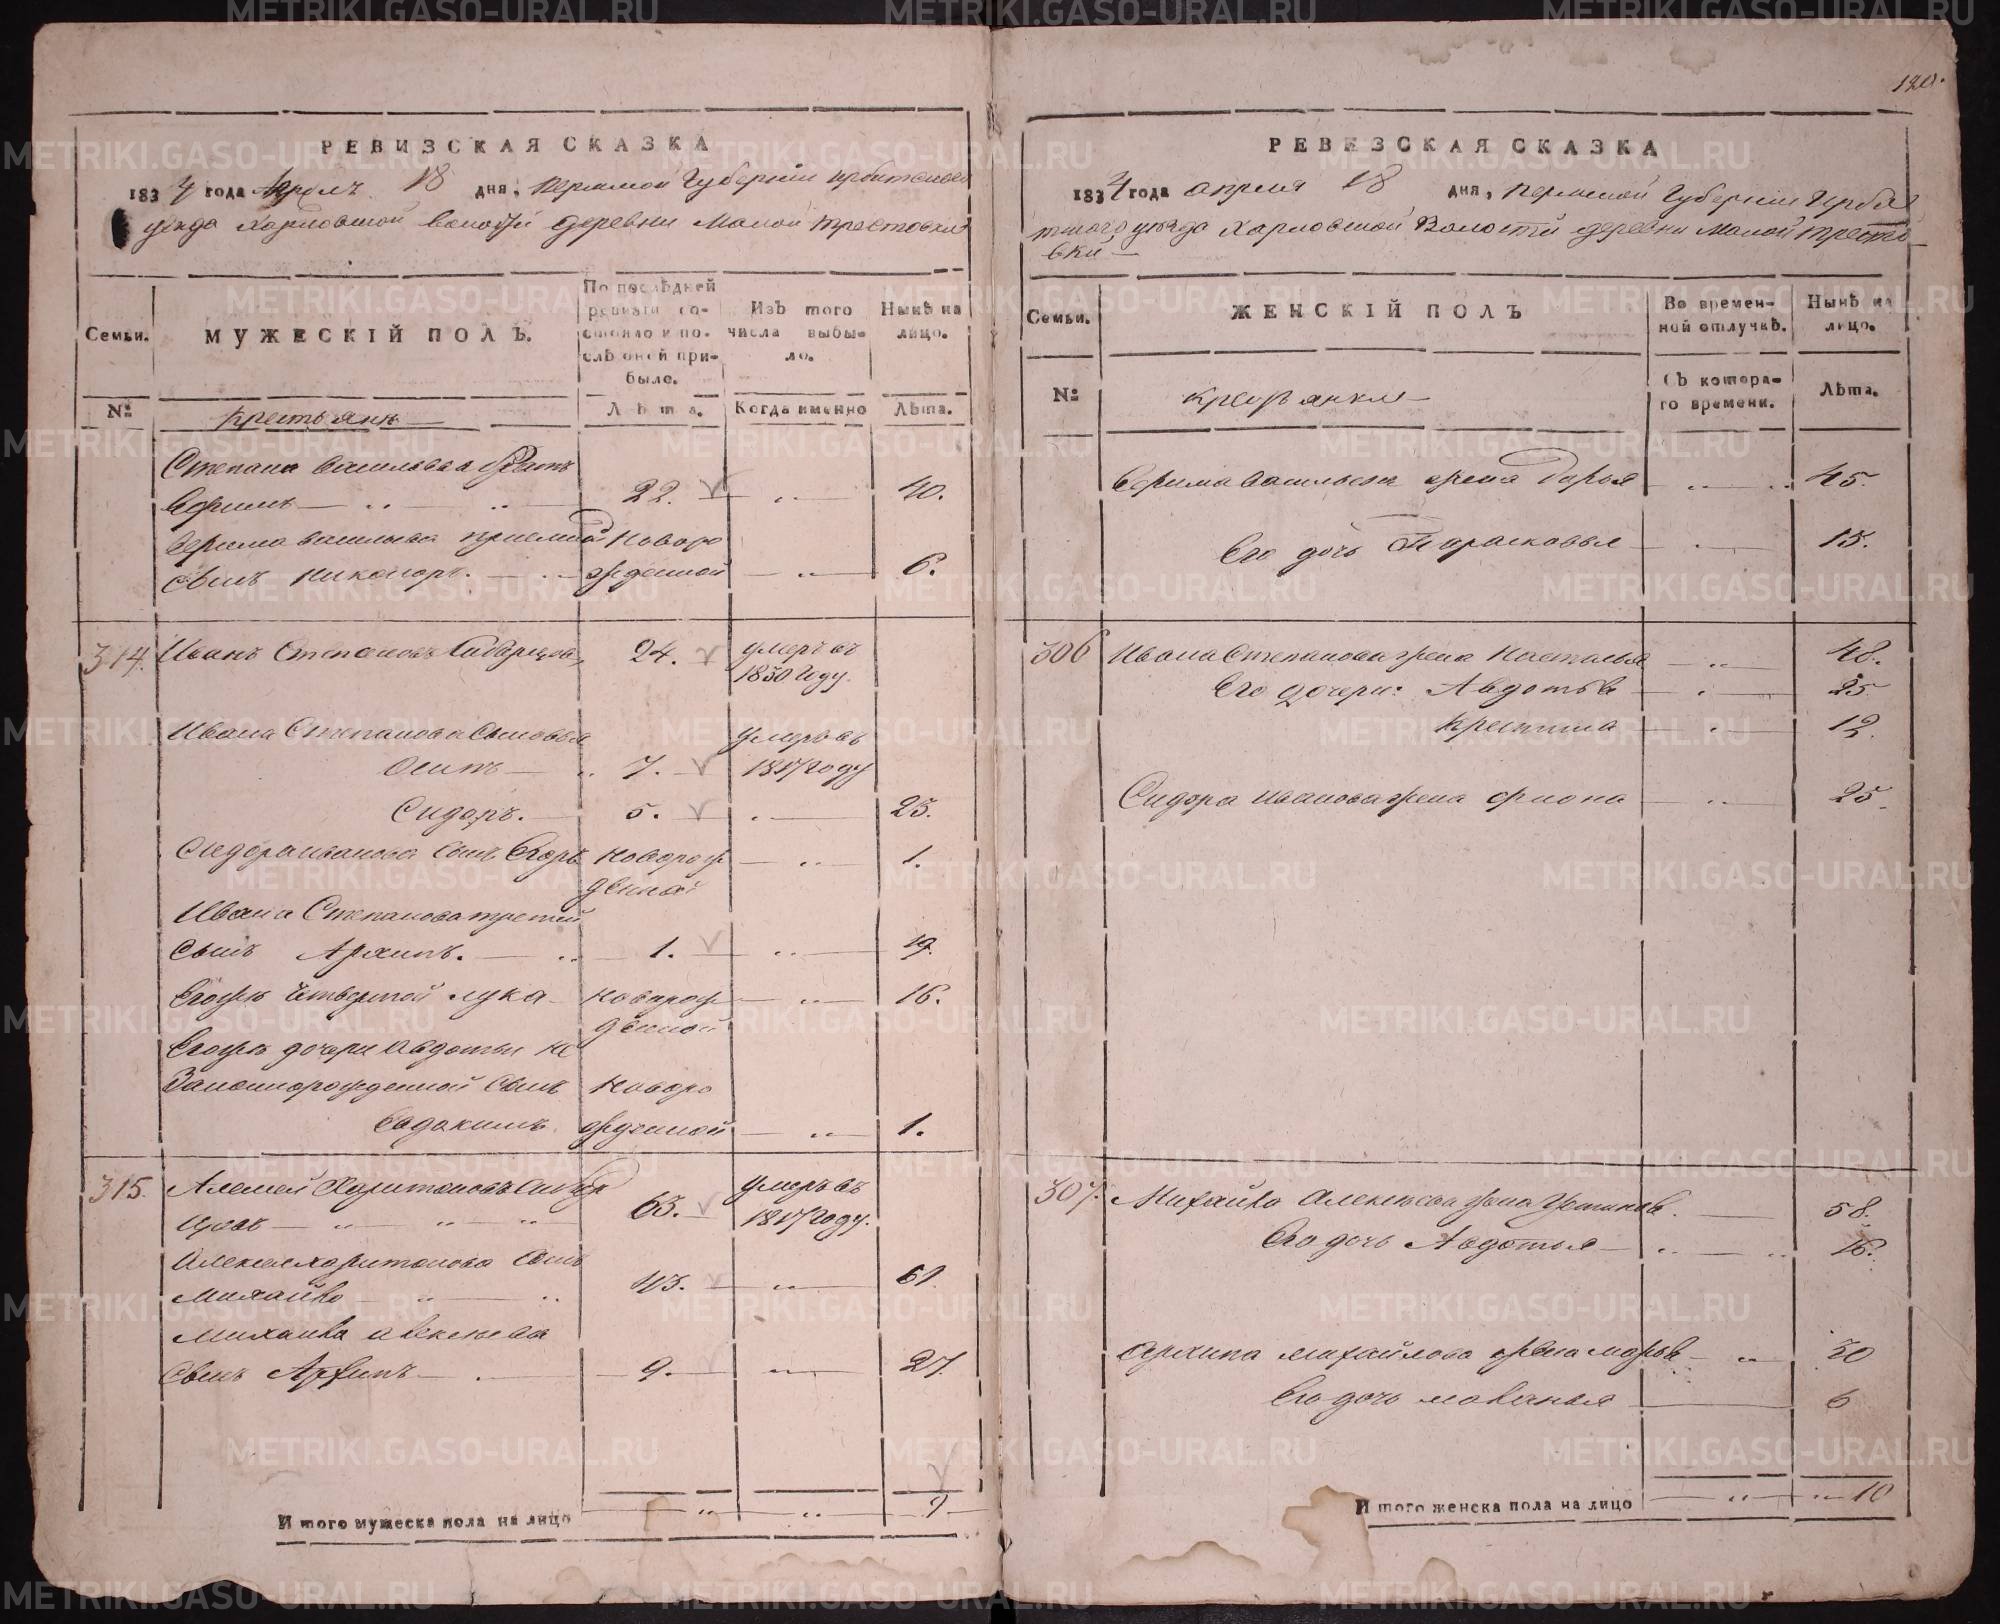 120.
РЕВИЗСКАЯ СКАЗКА
1834 года Апрель 18 дня, Пермской Губернии Ирбитского
уезда Харловской волости деревни Малой Трестовки
Семьи.
МУЖЕСКІЙ ПОЛЪ.
По послѣдней ревизіи состояло и послѣ оной прибыло.
Изъ того числа выбыло.
Нынѣ на лицо.
№
Крестьяне
Лѣта.
Когда именно
Лѣта.
Степана Васильева братъ
Ефимъ 22. 40.
Ефима Васильева приемной Новоро
сынъ Никоноръ. жденной 6.
314. Иванъ Степановъ 24. умеръ въ
1830 Году.
Ивана Степанова Сыновья умеръ въ
Осипъ 7. 1817 Году
Сидоръ. 5. 23.
Сидора Иванова Сынъ Егоръ Новорож 1.
денной
Ивана Степанова третий
Сынъ Архипъ. 1. 19.
Егожъ Четвертой Лука Новорож 16.
денной
Егожъ дочери Авдотьи не
Законнорожденной Сынъ Новоро
Евдокимъ жденной 1.
315. Алексей Харитоновъ 63. умеръ въ
1817 Году.
Алексея Харитонова Сынъ
Михайло 43. 61.
Михайла Алексеева
Сынъ Архипъ 9. 27.
И того мужеска пола на лицо 9
РЕВИЗСКАЯ СКАЗКА
1834 года апреля 18 дня, Пермской Губернии Ирби
тского уезда Харловской Волости деревни Малой Тресто
вки
Семьи.
ЖЕНСКІЙ ПОЛЪ
Во временной отлучкѣ.
Нынѣ на лицо.
№
Крестьянкѣ
Съ котораго времени.
Лѣта.
Ефима Васильева жена Дарья 45.
Его дочь Парасковья 15.
306 Ивана Степанова жена Наталья 48.
Его дочери: Авдотья 25
Крестина 12.
Сидора Иванова жена Фиона 25.
307. Михайла Алексеева жена Устинья. 58.
Его дочь Авдотья 16.
Архипа Михайлова жена Марья 30
Его дочь Маланья 6
И того женска пола на лицо 10
METRIKI.GASO-URAL.RU